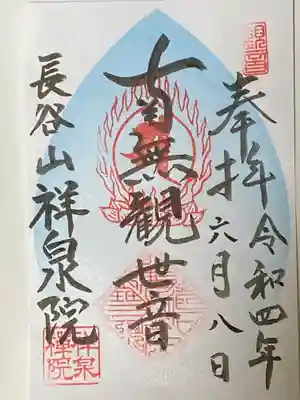 奉拝
令和四年
六月八日
南無観世音
長谷山祥泉院